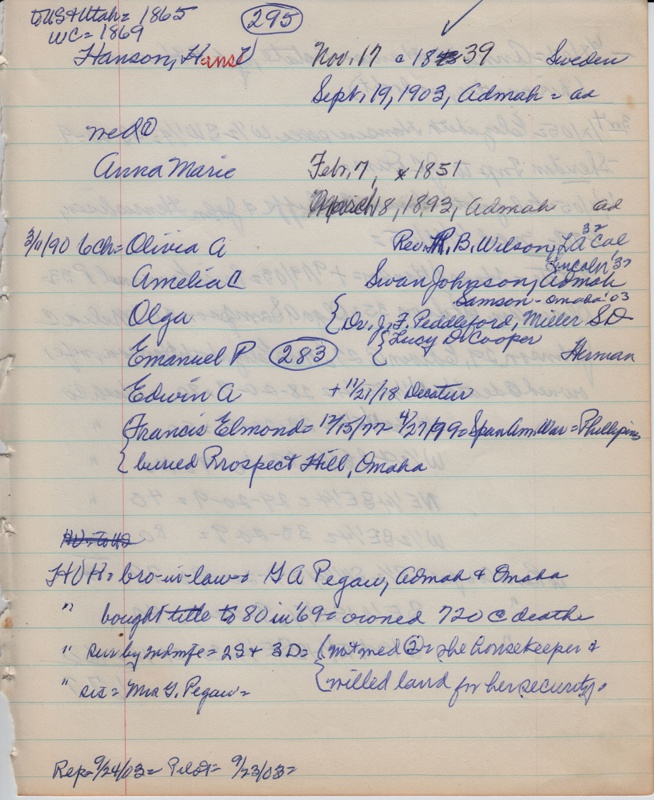 to US & Utah = 1865 (295)
WC = 1869
Hanson, Hans Nov. 17 c 1839 Sweden
Sept. 19, 1903, Admah = ad
med ①
Anna Marie Feb. 7, * 1851
March 18, 1893, Admah ad
3/11/90 6ch = Olivia A Rev. R. B. Wilson, LA Cal 32
Amelia C Swan Johnson, Admah Lincoln 32
Samson - Omaha '03
Olga { Dr. J. F. Peddleford, Miller SD
{ Lucy D. Cooper
Emanuel P (283) Herman
Edwin A + 11/21/18 Decatur
{ Francis Elmond = 12/15/77 4/27/99 = Span Am War = Phillipins
{ buried Prospect Hill, Omaha
HOH = bro-in-law = G A Pegau, Admah & Omaha
" bought title to 80 in '69 = owned 720 @ death
" sur by 2nd wife = 2S + 3D = { not med ② or the housekeeper &
" sis = Mrs G. Pegau = { willed land for her security.
Rep = 9/24/03 = Pilot = 9/23/03 =